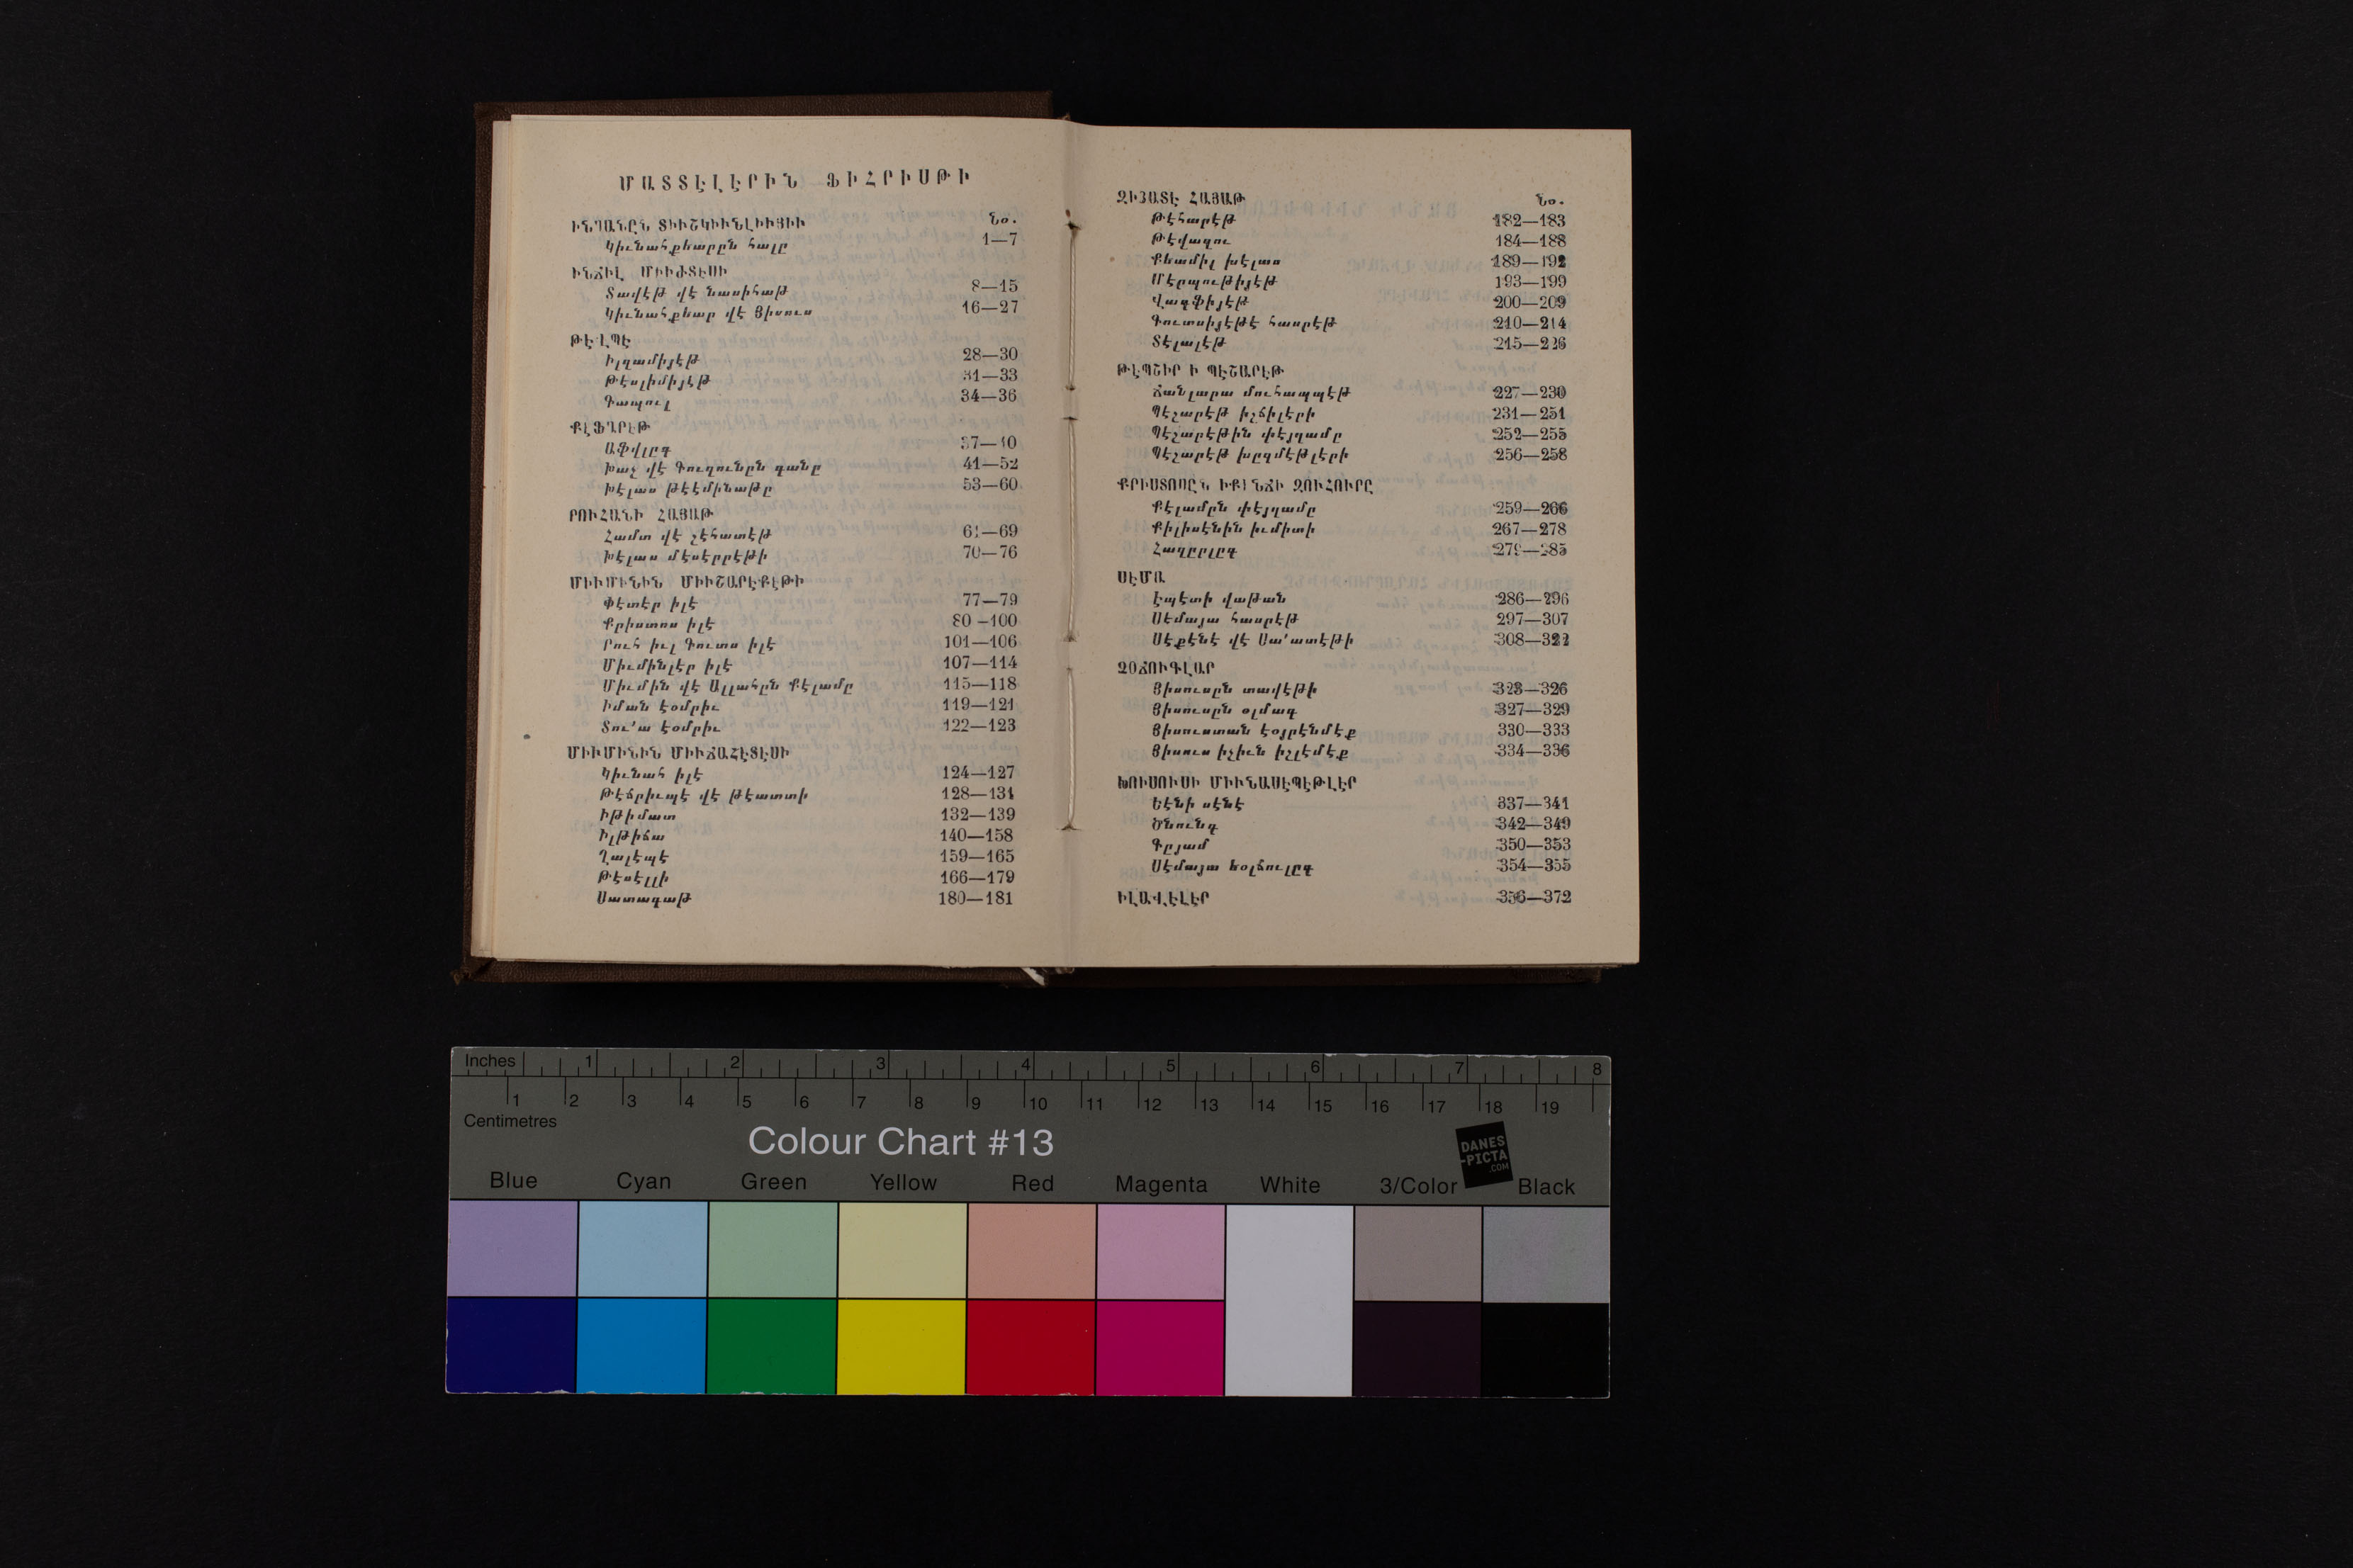 ՄԱՏՏԷԼԷՐԻՆ ՖԻՀՐԻՍԹԻ
ԻՆՍԱՆԸՆ ՏԻՒՇԿԻՒՆԼԻՒՅԻՒ Նօ.
Կիւնահքեարըն հալը 1—7
ԻՆՃԻԼ ՄԻՒԺՏԷՍԻ
Տավէթ վէ նասիհաթ 8—15
Կիւնահքեար վէ Յիսուս 16—27
ԹԷՎՊԷ
Իլզամիյէթ 28—30
Թէսլիմիյէթ 31—33
Գապուլ 34—36
ՔԷՖՂՐԷԹ
Աֆվլըգ 37—40
Խաչ վէ Գուզունըն գանը 41—52
Խէլաս թէէմինաթը 53—60
ՐՈՒՀԱՆԻ ՀԱՅԱԹ
Համտ վէ շէհատէթ 61—69
Խէլաս մէսէրրէթի 70—76
ՄԻՒՄԻՆԻՆ ՄԻՒՇԱՐԷՔԷԹԻ
Փէտէր իլէ 77—79
Քրիստոս իլէ 80—100
Րուհ իւլ Գուտս իլէ 101—106
Միւմինլէր իլէ 107—114
Միւմին վէ Ալլահըն Քէլամը 115—118
Իման էօմրիւ 119—121
Տու՚ա էօմրիւ 122—123
ՄԻՒՄԻՆԻՆ ՄԻՒՃԱՀԷՏԷՍԻ
Կիւնահ իլէ 124—127
Թէճրիւպէ վէ թէատտի 128—131
Իթիմատ 132—139
Իլթիճա 140—158
Ղալէպէ 159—165
Թէսէլլի 166—179
Սատագաթ 180—181
ԶԻՅԱՏԷ ՀԱՅԱԹ Նօ.
Թէհարէթ 182—183
Թէվազու 184—188
Քեամիլ խէլաս 189—192
Մէրպութիյէթ 193—199
Վագֆիյէթ 200—209
Գուտսիյէթէ հասրէթ 210—214
Տէլալէթ 215—226
ԹԷՊՇԻՐ Ի ՊԷՇԱՐԷԹ
Ճանլարա մուհապպէթ 227—230
Պէշարէթ իշճիլէրի 231—251
Պէշարէթին փէյղամը 252—255
Պէշարէթ խըզմէթլէրի 256—258
ՔՐԻՍՏՈՍԸՆ ԻՔԻՆՃԻ ԶՈՒՀՈՒՐԸ
Քէլամըն փէյղամը 259—266
Քիլիսէնին իւմիտի 267—278
Հազըրլըգ 279—285
ՍԷՄԱ
Էպէտի վաթան 286—296
Սէմայա հասրէթ 297—307
Սէքէնէ վէ Սա՚ատէթի 308—322
ՉՕՃՈՒԳԼԱՐ
Յիսուսըն տավէթի 323—326
Յիսուսըն օլմագ 327—329
Յիսուստան էօյրէնմէք 330—333
Յիսուս իչիւն իշլէմէք 334—336
ԽՈՒՍՈՒՍԻ ՄԻՒՆԱՍԷՊԷԹԼԷՐ
Եէնի սէնէ 337—341
Ծնունդ 342—349
Գըյամ 350—353
Սէմայա եօլճուլըգ 354—355
ԻԼԱՎԷԼԷՐ 356—372
Inches 1 2 3 4 5 6 7 8
1 2 3 4 5 6 7 8 9 10 11 12 13 14 15 16 17 18 19
Centimetres
Colour Chart #13
DANES
-PICTA
.COM
Blue Cyan Green Yellow Red Magenta White 3/Color Black